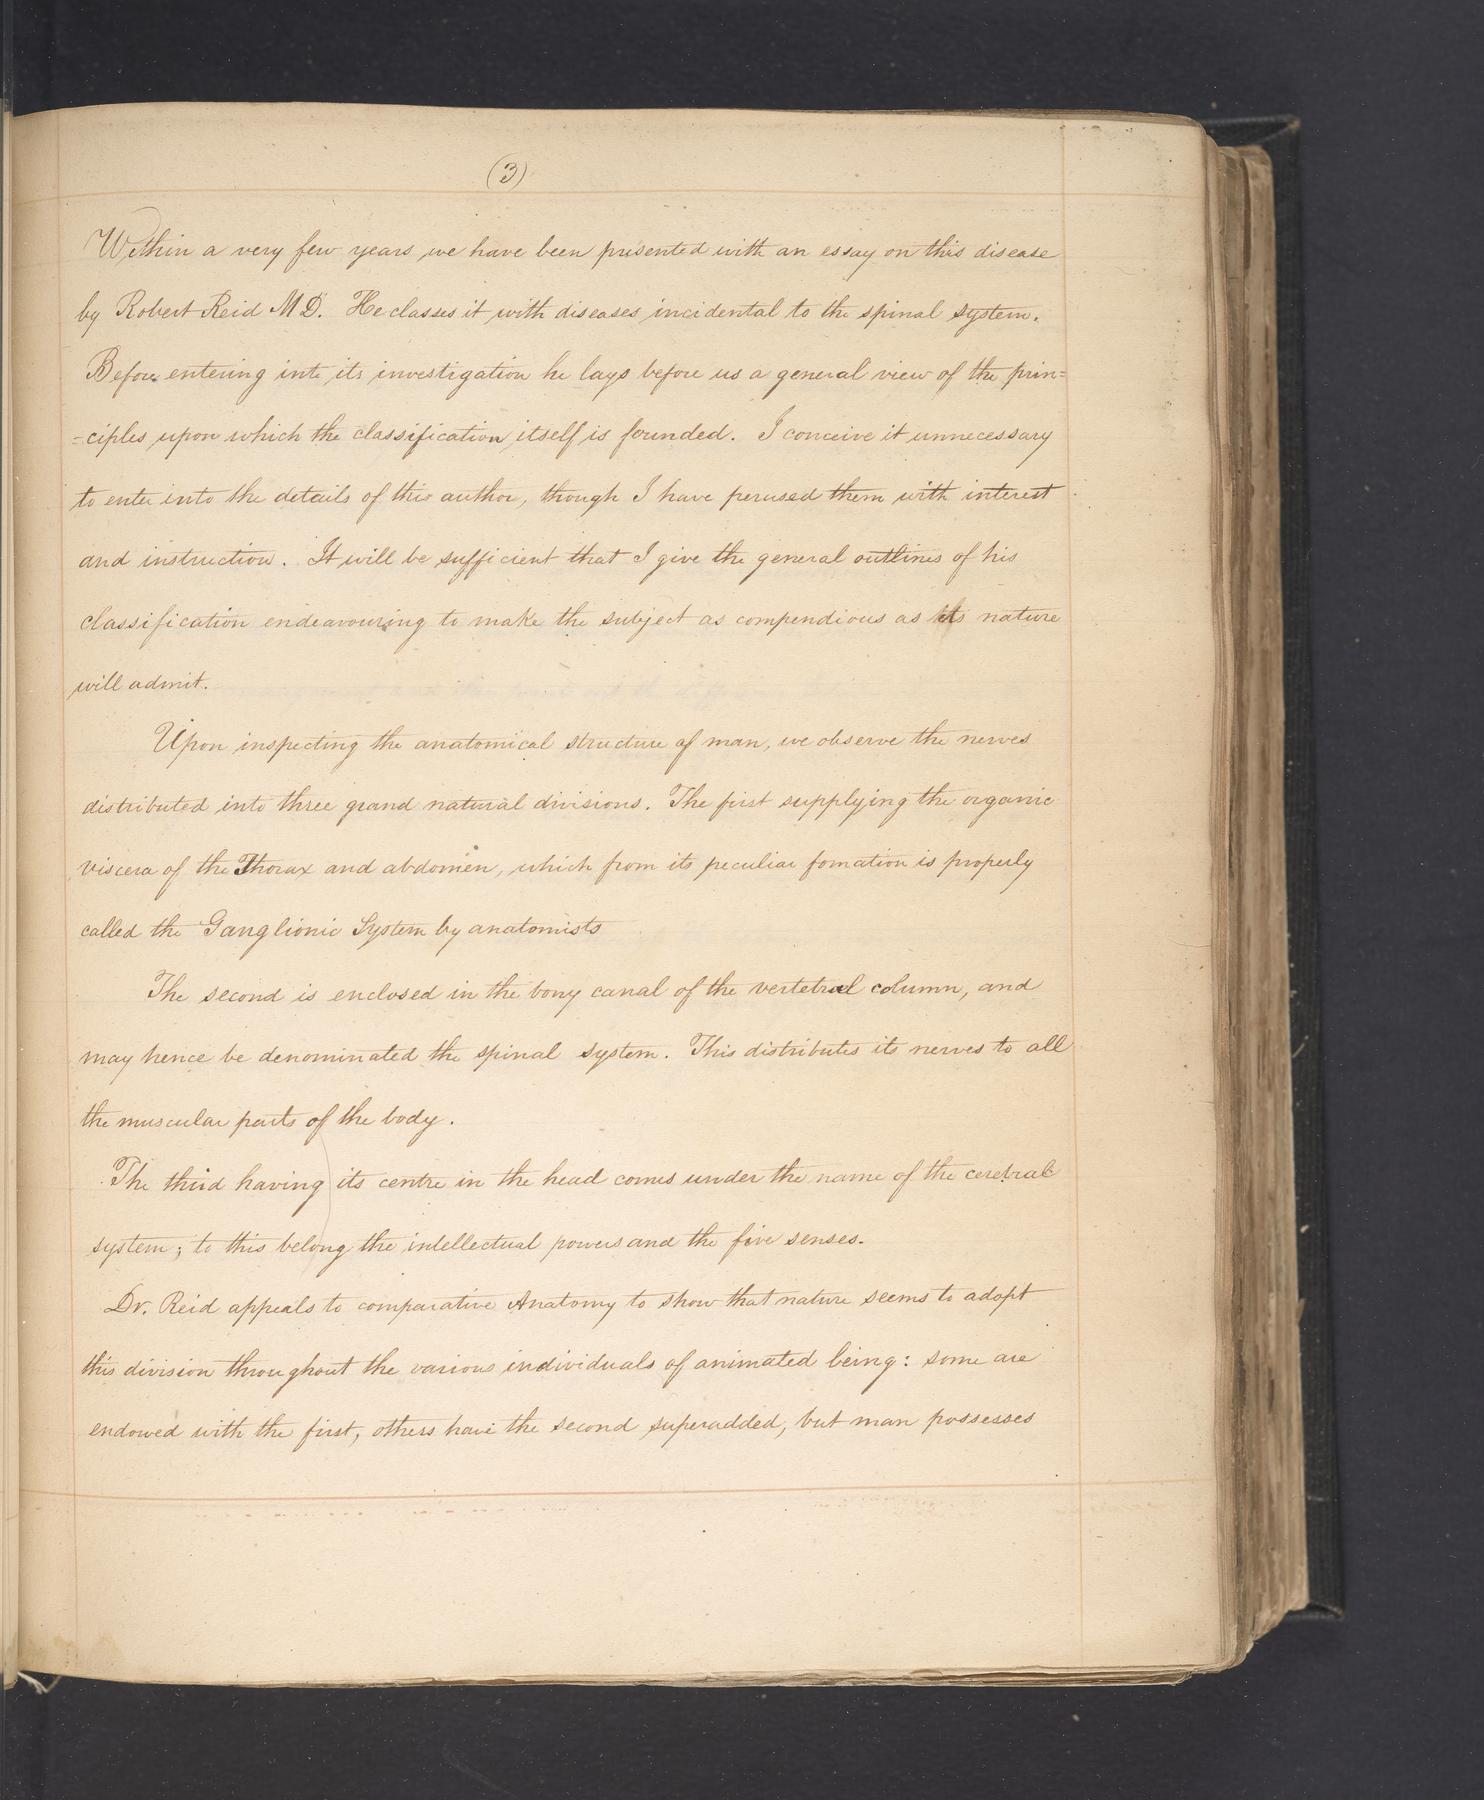 (3)
Within a very few years we have been presented with an essay on this disease
by Robert Reid M D. He classes it with diseases incidental to the spinal system.
Before entering into its investigation he lays before us a general view of the prin=
=ciples upon which the classification itself is founded. I conceive it unnecessary
to enter into the details of this author, though I have perused them with interest
and instruction. It will be sufficient that I give the general outlines of his
classification endeavouring to make the subject as compendious as its nature
will admit.
Upon inspecting the anatomical structure of man, we observe the nerves
distributed into three grand natural divisions. The first supplying the organic
viscera of the Thorax and abdomen, which from its peculiar fomation is properly
called the Ganglionic System by anatomists
The second is enclosed in the bony canal of the vertebral column, and
may hence be denominated the spinal system. This distributes its nerves to all
the muscular parts of the body.
The third having its centre in the head comes under the name of the cerebral
system; to this belong the intellectual powers and the five senses.
Dr. Reid appeals to comparative Anatomy to show that nature seems to adopt
this division throughout the various individuals of animated being: some are
endowed with the first, others have the second superadded, but man possesses